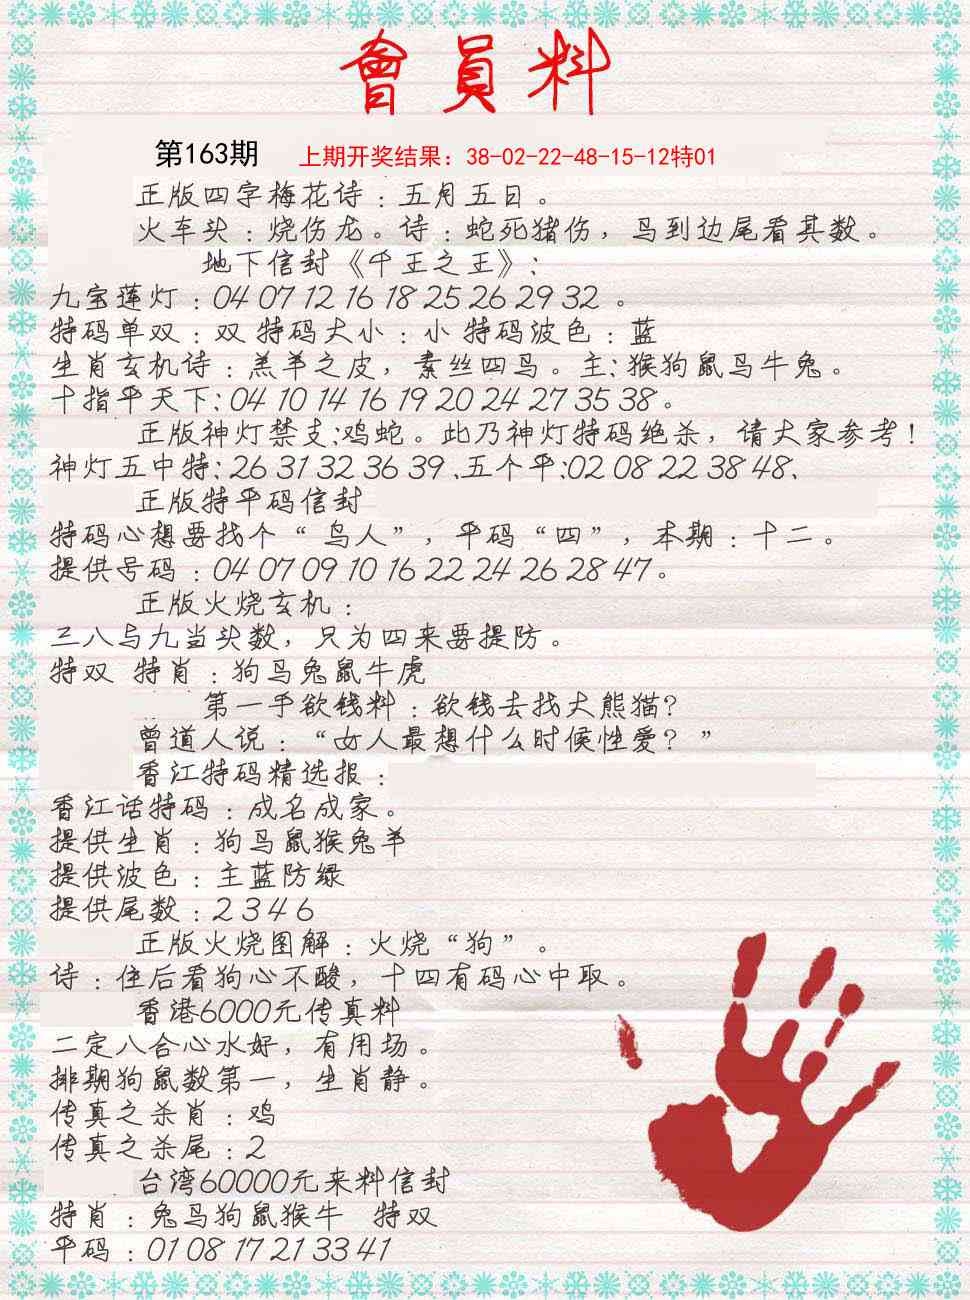 會員料
第163期 上期开奖结果：38-02-22-48-15-12特01
正版四字梅花诗：五月五日。
火车头：烧伤龙。诗：蛇死猪伤，鸟到边尾看其数。
地下信封《千王之王》：
九宝莲灯：04 07 12 16 18 25 26 29 32 。
特码单双：双 特码大小：小 特码波色：蓝
生肖玄机诗：羔羊之皮，素丝四马。主：猴狗鼠马牛兔。
十指平天下：04 10 14 16 19 20 24 27 35 38。
正版神灯禁支：鸡蛇。此乃神灯特码绝杀，请大家参考！
神灯五中特：26 31 32 36 39 、五个平：02 08 22 38 48、
正版特平码信封
特码心想要找个“ 鸟人”，平码“四”，本期：十二。
提供号码：04 07 09 10 16 22 24 26 28 47。
正版火烧玄机：
三八与九当头数，只为四来要提防。
特双 特肖：狗马兔鼠牛虎
第一手欲钱料：欲钱去找大熊猫？
曾道人说：“女人最想什么时候性爱？”
香江特码精选报：
香江话特码：成名成家。
提供生肖：狗马鼠猴兔羊
提供波色：主蓝防绿
提供尾数：2 3 4 6
正版火烧图解：火烧“狗”。
诗：住后看狗心不酸，十四有码心中取。
香港6000元传真料
二定八合心水好，有用场。
排期狗鼠数第一，生肖静。
传真之杀肖：鸡
传真之杀尾：2
台湾60000元来料信封
特肖：兔马狗鼠猴牛 特双
平码：01 08 17 21 33 41